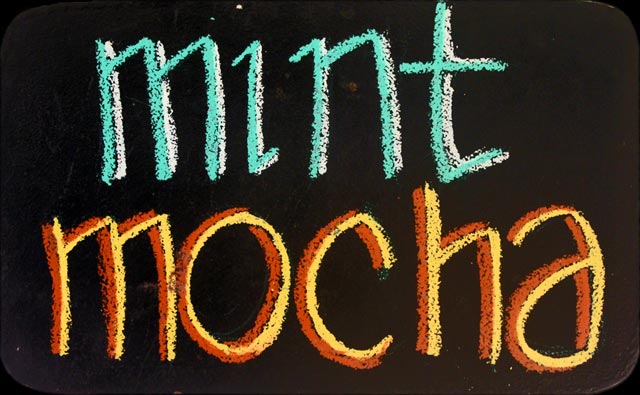 mint
mocha